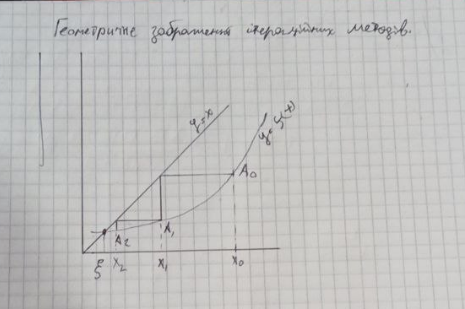 Геометричне зображення ітераційних методів.
y=x
y=φ(x)
A₀
A₂
A₁
ξ
x₂
x₁
x₀